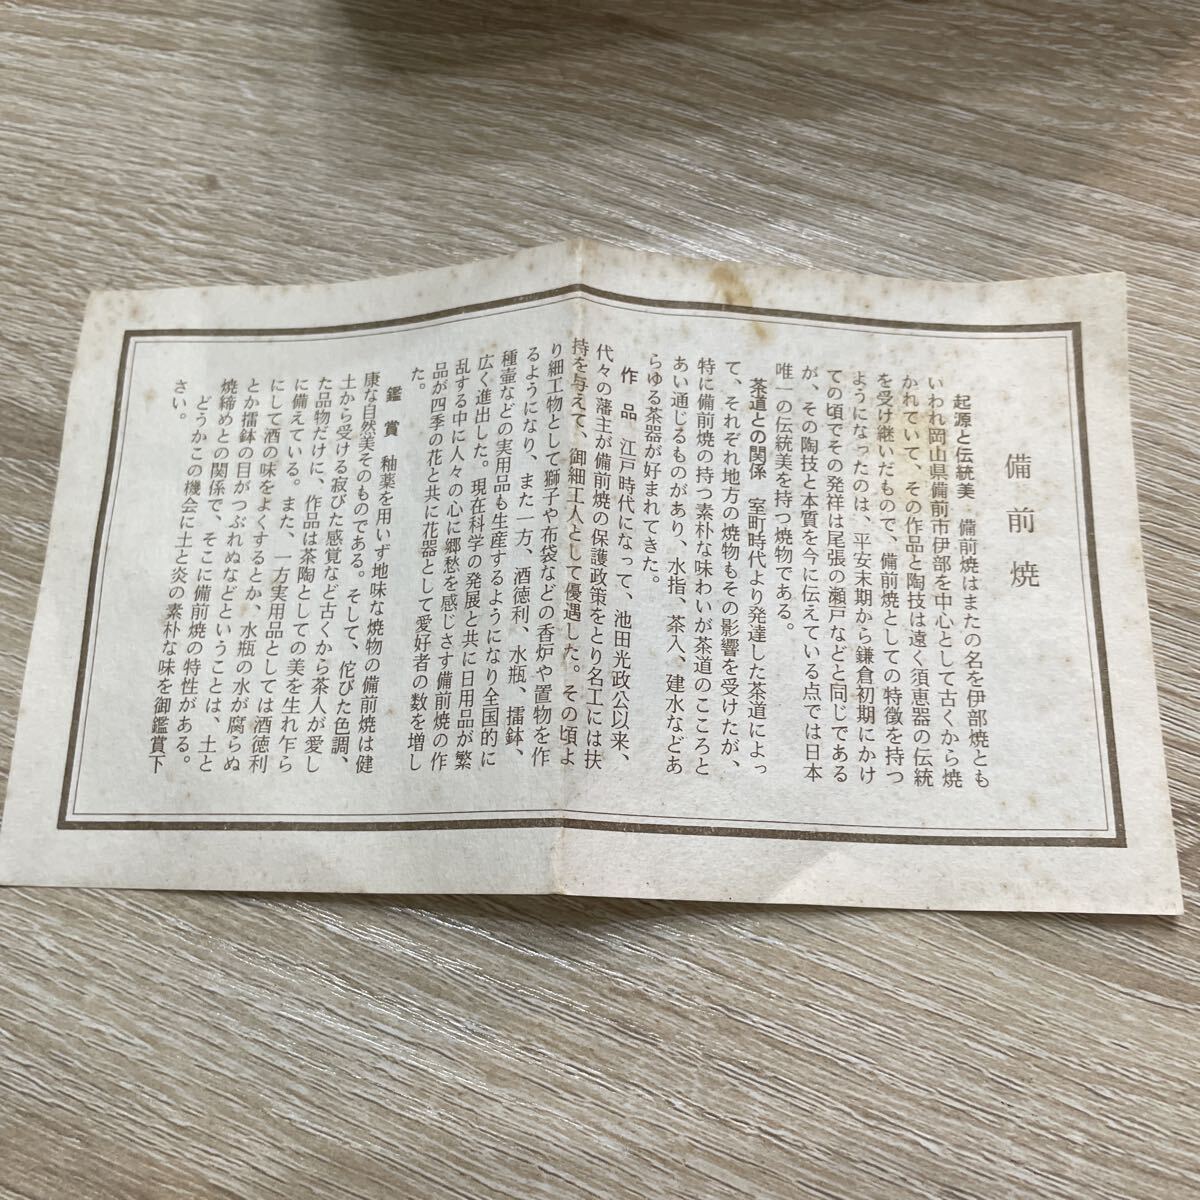 備前焼
起源と伝統美　備前焼はまたの名を伊部焼とも
いわれ岡山県備前市伊部を中心として古くから焼
かれていて、その作品と陶技は遠く須恵器の伝統
を受け継いだもので、備前焼としての特徴を持つ
ようになったのは、平安末期から鎌倉初期にかけ
ての頃でその発祥は尾張の瀬戸などと同じである
が、その陶技と本質を今に伝えている点では日本
唯一の伝統美を持つ焼物である。
茶道との関係　室町時代より発達した茶道によっ
て、それぞれ地方の焼物もその影響を受けたが、
特に備前焼の持つ素朴な味わいが茶道のこころと
あい通じるものがあり、水指、茶入、建水などあ
らゆる茶器が好まれてきた。
作品　江戸時代になって、池田光政公以来、
代々の藩主が備前焼の保護政策をとり名工には扶
持を与えて、御細工人として優遇した。その頃よ
り細工物として獅子や布袋などの香炉や置物を作
るようになり、また一方、酒徳利、水瓶、擂鉢、
種壷などの実用品も生産するようになり全国的に
広く進出した。現在科学の発展と共に日用品が繁
乱する中に人々の心に郷愁を感じさす備前焼の作
品が四季の花と共に花器として愛好者の数を増し
た。
鑑賞　釉薬を用いず地味な焼物の備前焼は健
康な自然美そのものである。そして、侘びた色調、
土から受ける寂びた感覚など古くから茶人が愛し
た品物だけに、作品は茶陶としての美を生れ乍ら
に備えている。また、一方実用品としては酒徳利
にして酒の味をよくするとか、水瓶の水が腐らぬ
とか擂鉢の目がつぶれぬなどということは、土と
焼締めとの関係で、そこに備前焼の特性がある。
どうかこの機会に土と炎の素朴な味を御鑑賞下
さい。